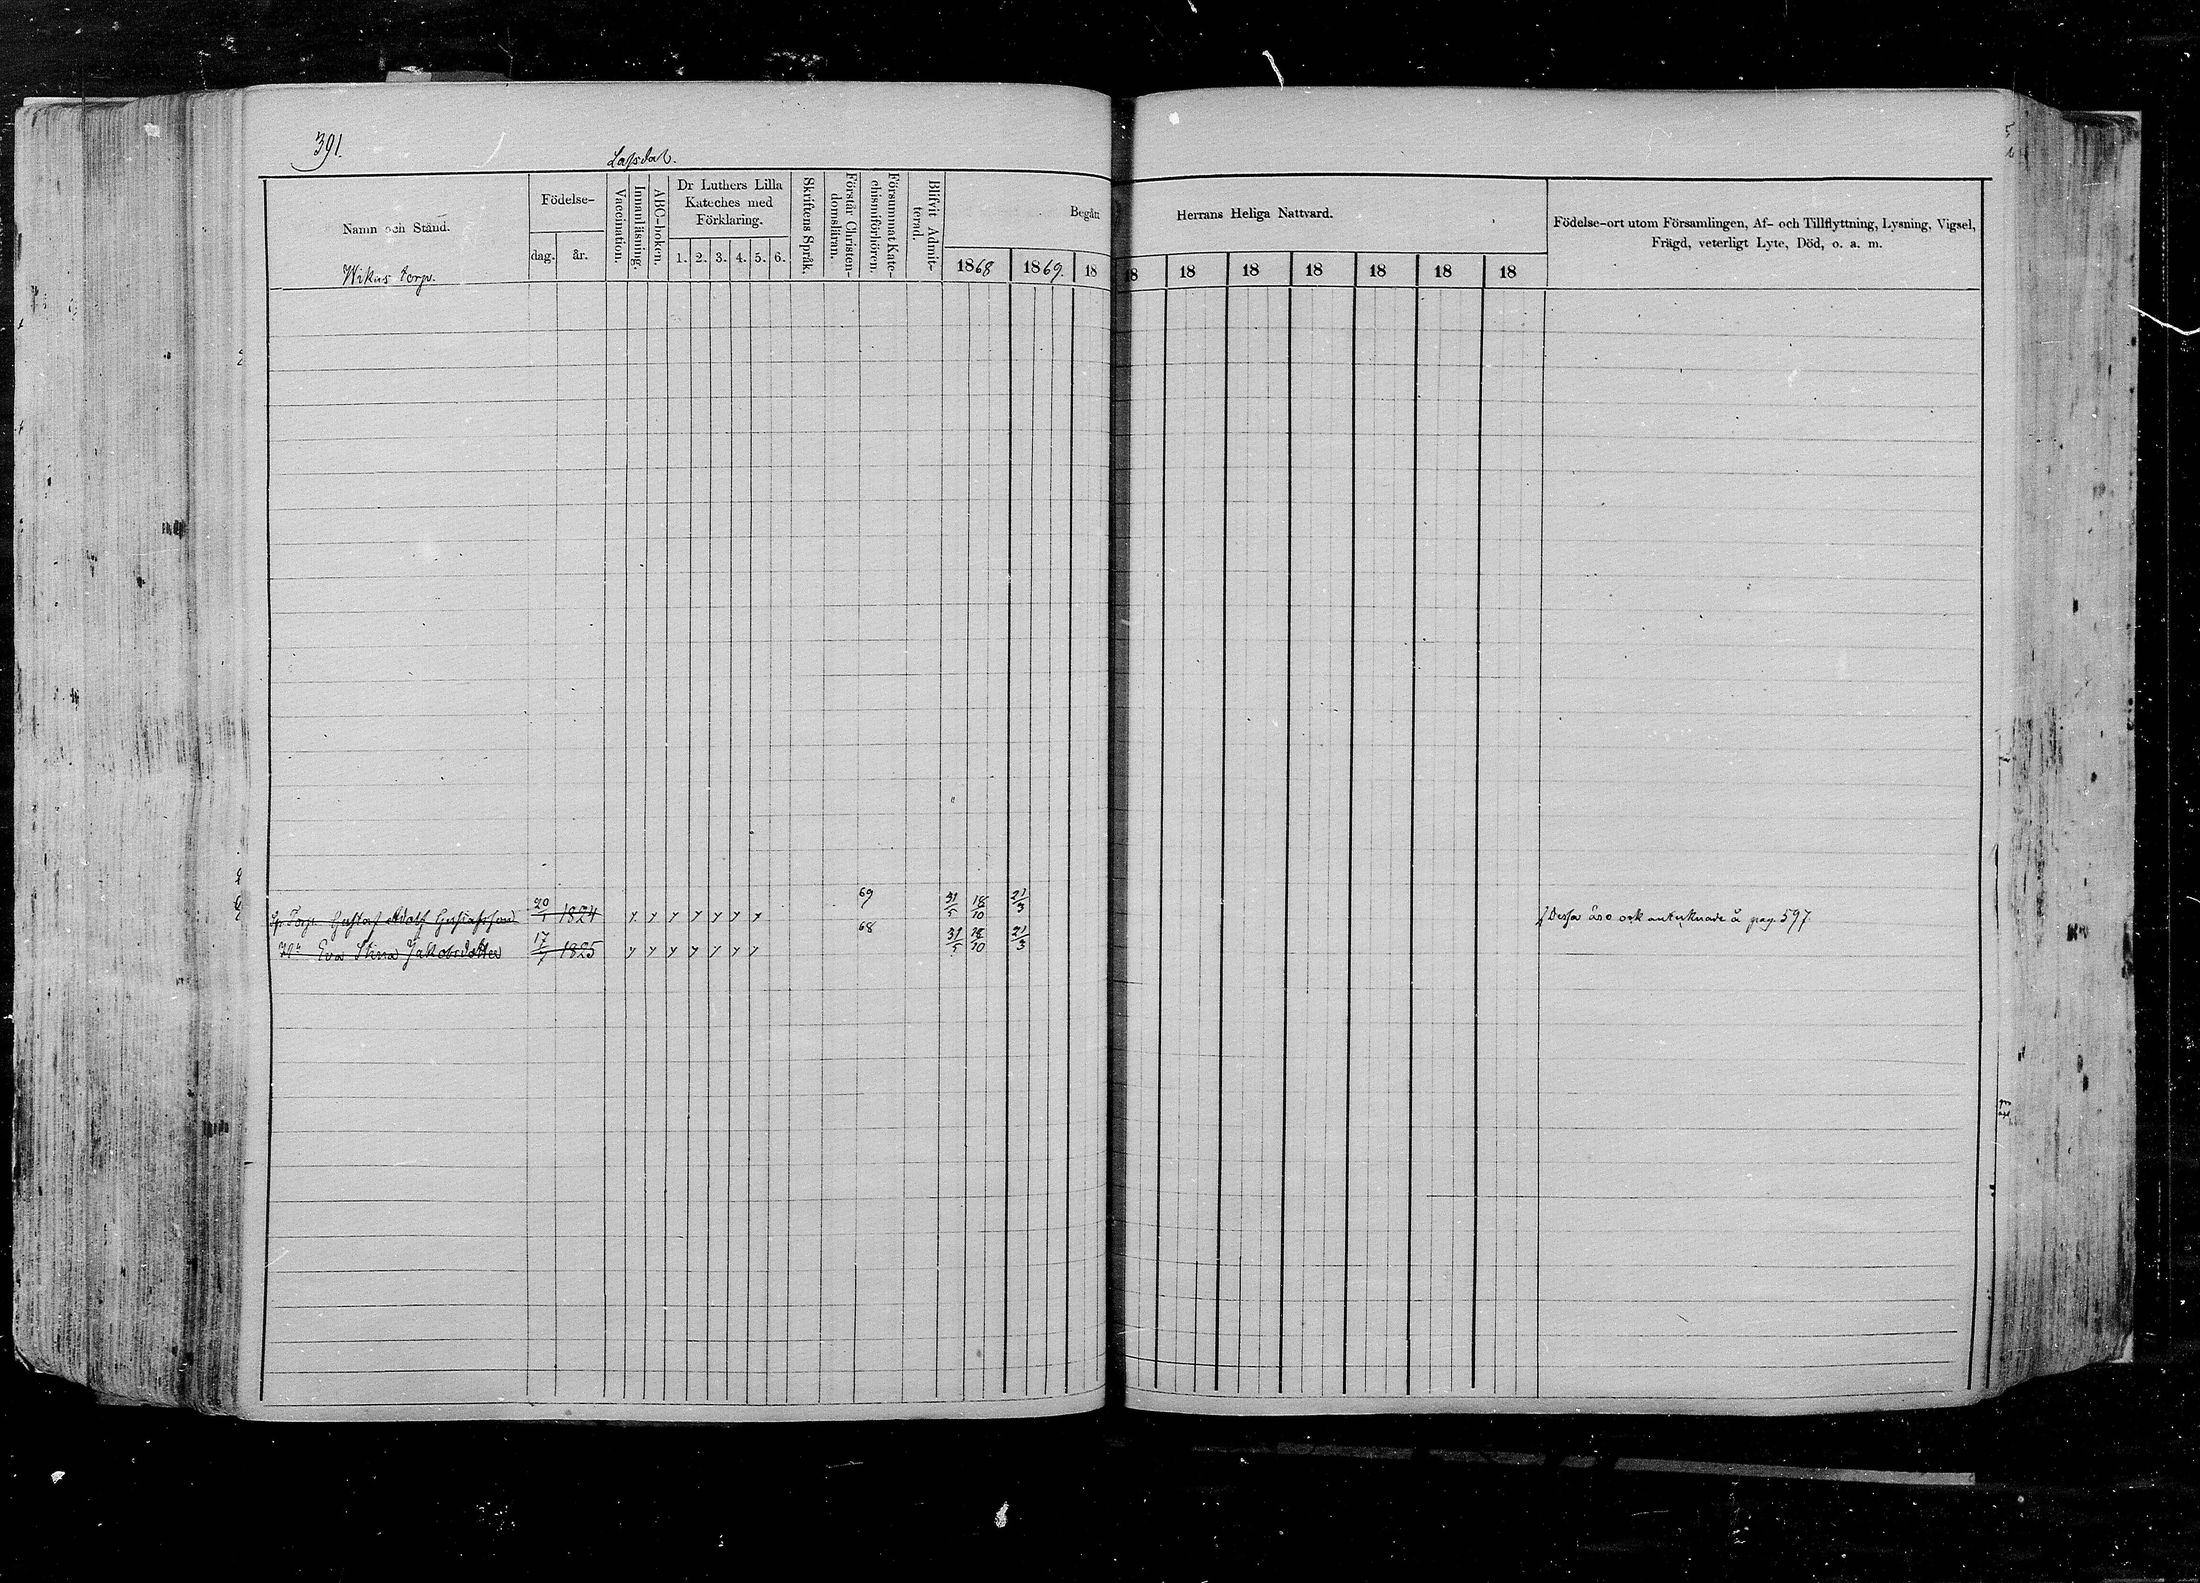 391.
Lapdal.
Namn och Stånd.
Födelse-
dag. år.
Vaccination.
Innanläsning.
ABC-boken.
Dr Luthers Lilla
Kateches med
Förklaring.
1. 2. 3. 4. 5. 6.
Skriftens Språk.
Förstår Christen-
domsläran.
Försummat Kate-
chismiförhören.
Blifvit Admit-
terad.
Begått
Herrans Heliga Nattvard.
1868 1869. 18 18 18 18 18 18 18 18
Födelse-ort utom Församlingen, Af- och Tillflyttning, Lysning, Vigsel,
Frägd, veterligt Lyte, Död, o. a. m.
Wikus Torp.
Torp. Gustaf Adolf Gustafsson 20/1 1824 69 31/5 18/10 21/3 Dessa äro ock antecknade å pag. 597
Eva Stina Jakobsdotter 17/7 1825 68 31/5 18/10 21/3